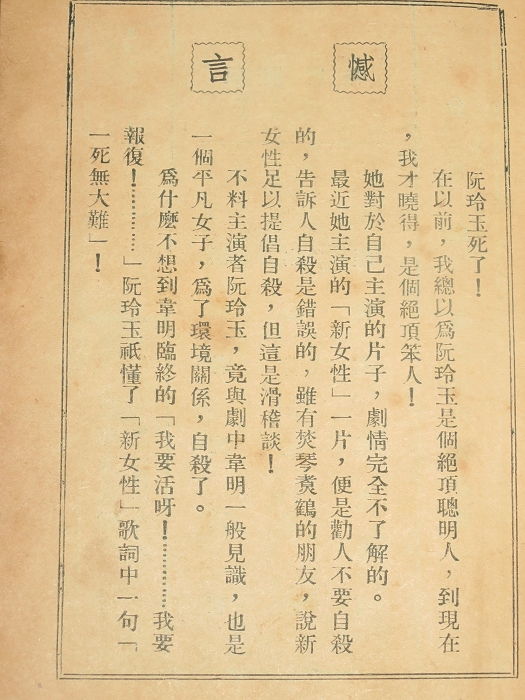 憾言
阮玲玉死了！
在以前，我總以爲阮玲玉是個絕頂聰明人，到現在
，我才曉得，是個絕頂笨人！
她對於自己主演的片子，劇情完全不了解的。
最近她主演的「新女性」一片，便是勸人不要自殺
的，告訴人自殺是錯誤的，雖有焚琴煑鶴的朋友，說新
女性足以提倡自殺，但這是滑稽談！
不料主演者阮玲玉，竟與劇中韋明一般見識，也是
一個平凡女子，爲了環境關係，自殺了。
爲什麽不想到韋明臨終的「我要活呀！…………我要
報復！…………」阮玲玉祇懂了「新女性」歌詞中一句「
一死無大難」！